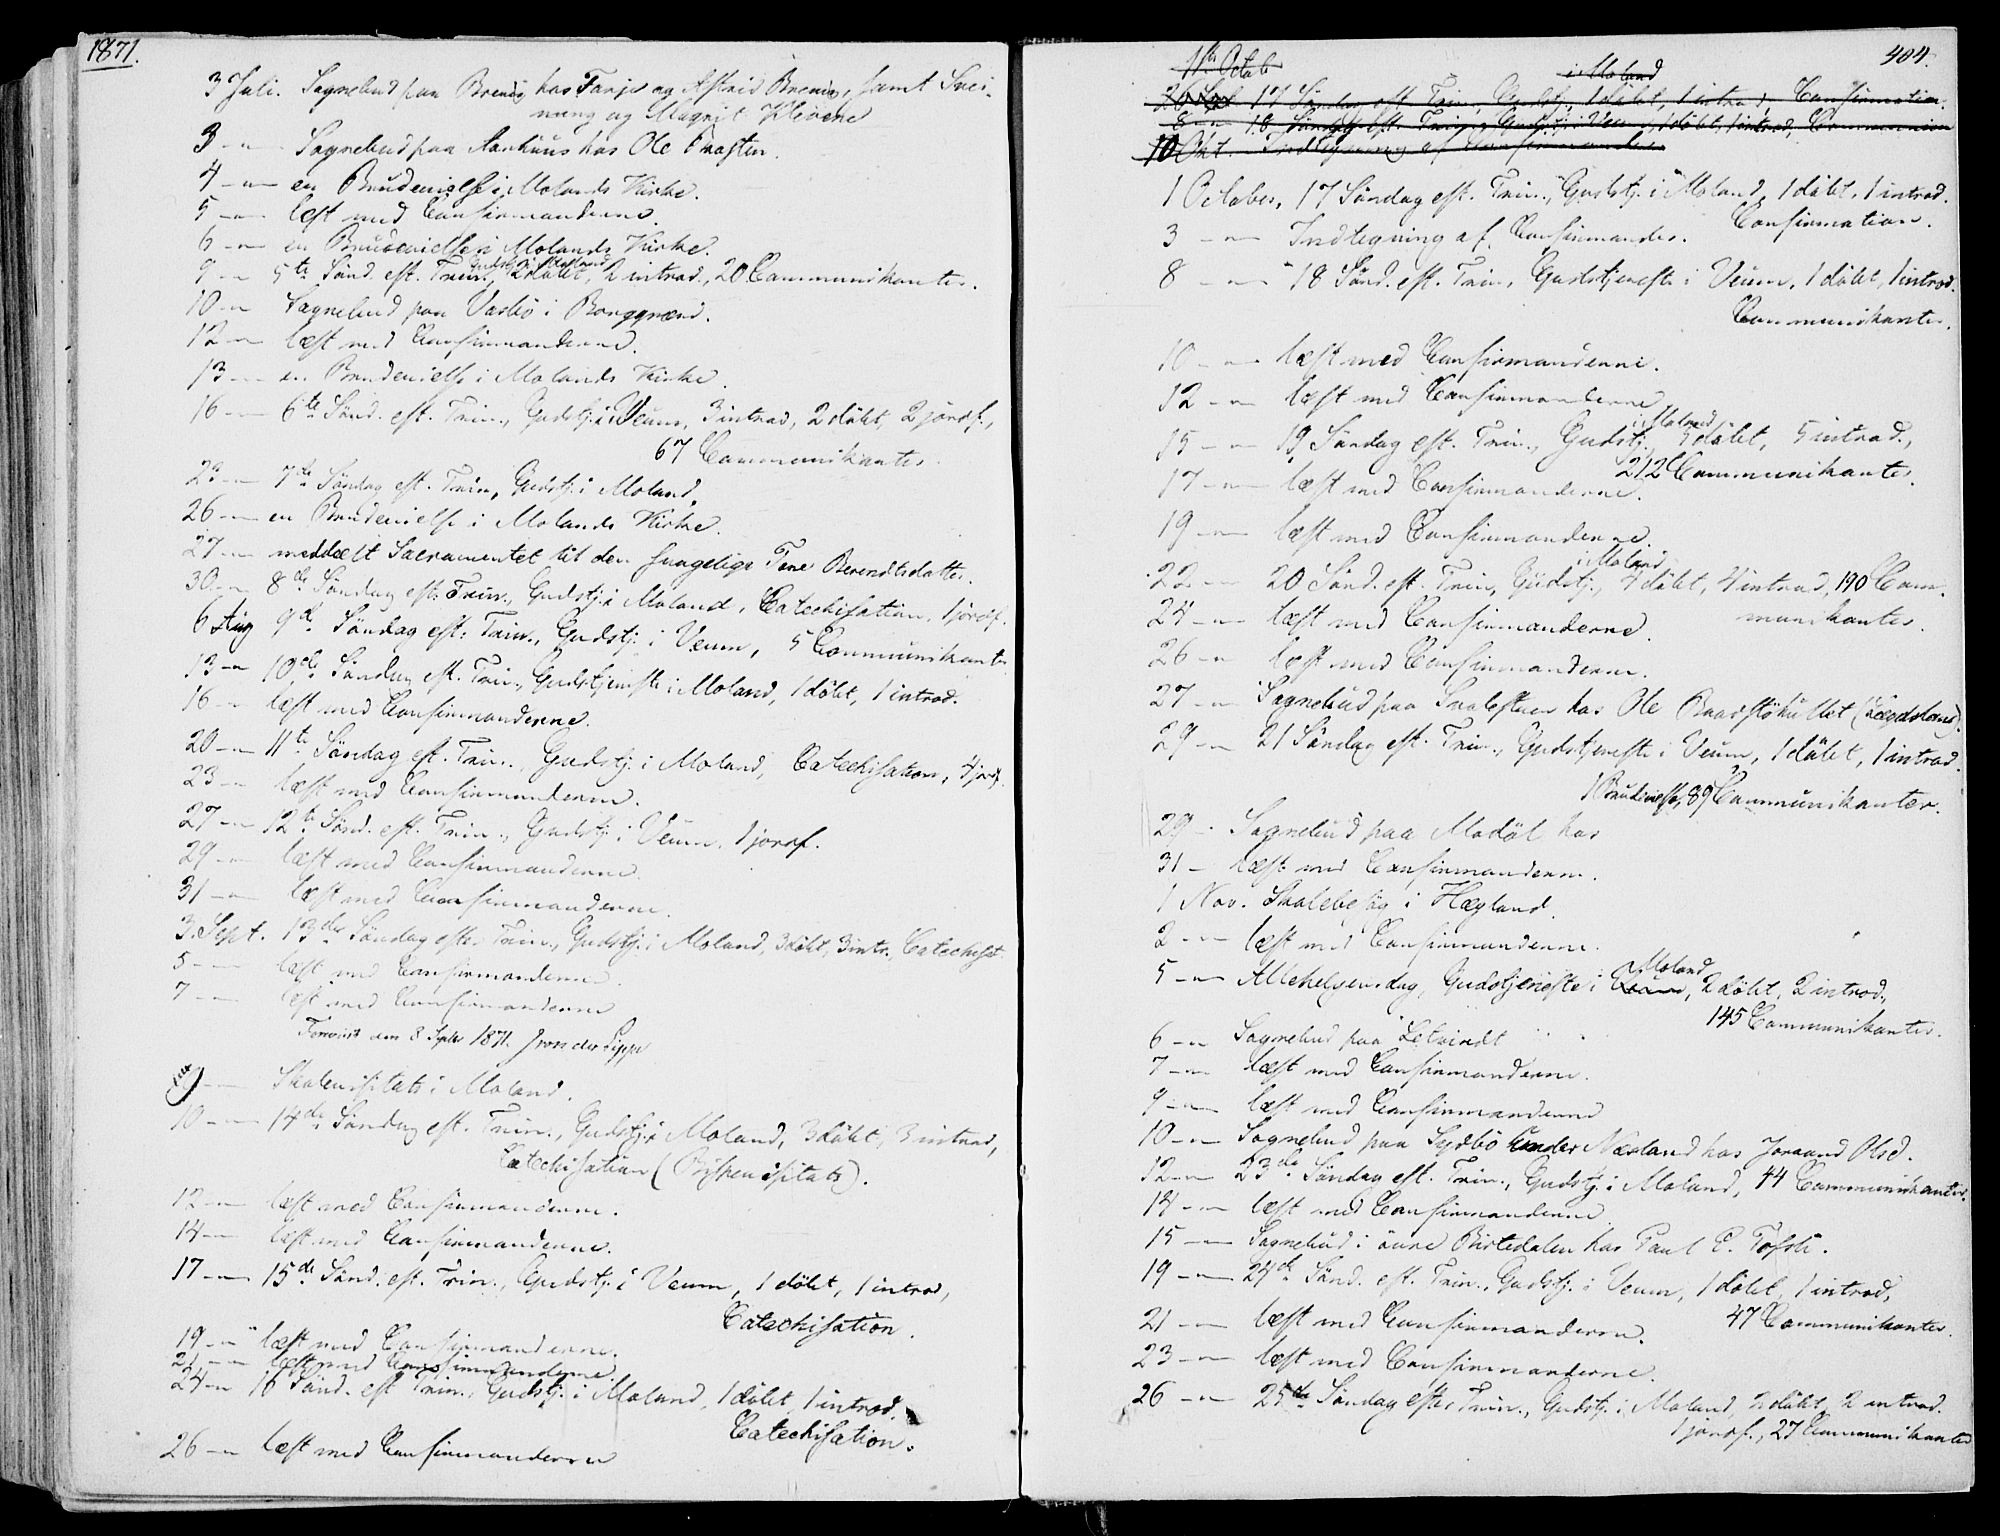 1871.
3 Juli. Sognebud paa Brenne hos Tarje og Astrid Brenne, samt Svei-
nung og Magnit Klevene
3 -"- Sognebud paa Aarhuus hos Ole Kragten.
4 -"- en Brudevielse i Molands Kirke.
5 -"- læst med Confirmanderne.
6 -"- en Brudevielse i Molands Kirke.
9 -"- 5te Sönd. eft. Trin., Gudstj. i Moland, 2 döbt, 2 introd., 20 Communikanter.
10 -"- Sognebud paa Vasbö i Borggrænd.
12 -"- læst med Confirmanderne.
13 -"- en Brudevielse i Molands Kirke.
16 -"- 6te Sönd. eft. Trin., Gudstj. i Veum, 3 introd, 2 döbt, 2 jordf.,
67 Communikanter
23 -"- 7de Söndag eft. Trin, Gudstj. i Moland.
26 -"- en Brudevielse i Molands Kirke.
27 -"- meddelt Sacramentet til den sengelige Tone Berendtsdatter.
30 -"- 8de Söndag eft. Trin., Gudstj. i Moland, Catechisation, 1 jordf.
6 Aug 9de Söndag eft. Trin., Gudstj. i Veum, 5 Communikanter
13 -"- 10de Söndag eft. Trin., Gudstjeneste i Moland, 1 döbt, 1 introd.
16 -"- læst med Confirmanderne.
20 -"- 11te Söndag eft. Trin., Gudstj. i Moland, Catechisation, 4 jordf.
23 -"- læst med Confirmanderne.
27 -"- 12te Sönd. eft. Trin., Gudstj. i Veum, 1 jordf.
29 -"- læst med Confirmanderne.
31 -"- læst med Confirmanderne.
3. Sept. 13de Söndag efter Trin., Gudstj. i Moland, 3 döbt, 3 intr., Catechisat.
5 -"- læst med Confirmanderne.
7 -"- læst med Confirmanderne
Forevist den 8 Septbr 1871. J von der Lippe
9 -"- Skolevisitats i Moland.
10 -"- 14de Söndag eft. Trin., Gudstj. i Moland, 3 döbt, 3 introd,
Catechisation (Bispevisitats).
12 -"- læst med Confirmanderne.
14 -"- læst med Confirmanderne.
17 -"- 15de Sönd. eft. Trin., Gudstj. i Veum, 1 döbt, 1 introd,
Catechisation.
19 -"- læst med Confirmanderne.
21 -"- læst med Confirmanderne.
24 -"- 16 Sönd. eft Trin., Gudstj. i Moland, 1 döbt, 1 introd.
Catechisation.
26 -"- læst med Confirmanderne
404.
1ste Octob
i Moland
17 Söndag eft. Trin., Gudstj., 1 döbt, 1 introd, Confirmation.
8 -"- 18 Söndag eft. Trin., Gudstj. i Veum, 1 döbt, 1 introd, Communion
10 Okt. Indtegning af Confirmander
1 October, 17 Söndag eft. Trin., Gudstj. i Moland, 1 döbt, 1 introd.
Confirmation.
3 -"- Indtegning af Confirmander.
8 -"- 18 Sönd. eft. Trin., Gudstjeneste i Veum, 1 döbt, 1 introd.
Communikanter.
10 -"- læst med Confirmanderne.
12 -"- læst med Confirmanderne
15 -"- 19 Söndag eft. Trin., Gudstj. i Moland, 5 döbt, 5 introd.,
212 Communikanter.
17 -"- læst med Confirmanderne.
19 -"- læst med Confirmanderne.
22 -"- 20 Sönd. eft. Trin, Gudstj. i Moland, 4 döbt, 4 introd, 190 Com-
munikanter.
24 -"- læst med Confirmanderne.
26 -"- læst med Confirmanderne.
27 -"- Sognebud paa hos Ole (Lægdslem).
29 -"- 21 Söndag eft. Trin., Gudstjeneste i Veum, 1 döbt, 1 introd.
1 Brudevielse, 89 Communikanter.
29 - Sognebud paa Modöl hos
31 - læst med Confirmanderne.
1 Nov. Skolebesög i Hægland.
2 -"- læst med Confirmanderne.
5 -"- Allehelgensdag, Gudstjeneste i Veum Moland, 2 döbt, 2 introd.,
145 Communikanter.
6 -"- Sognebud paa Letvindt
7 -"- læst med Confirmanderne.
9 -"- læst med Confirmanderne
10 -"- Sognebud paa Sydbö under Næsland hos Joraand Olsd.
12 -"- 23de Söndag eft. Trin., Gudstj. i Moland, 44 Communikanter.
14 -"- læst med Confirmanderne
15 -"- Sognebud i övre Birtedalen hos Paul E. Tofsli.
19 -"- 24de Sönd. eft. Trin., Gudstj. i Veum, 1 döbt, 1 introd,
47 Communikanter.
21 -"- læst med Confirmanderne.
23 -"- læst med Confirmanderne.
26 -"- 25de Söndag efter Trin., Gudstj. i Moland, 2 döbt, 2 introd.
1 jordf., 27 Communikanter